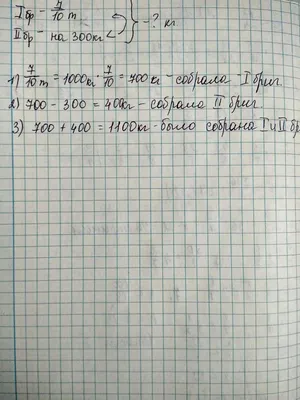 I бр - 7/10 т
II бр - на 300кг < } - ? кг
1) 7/10 т = 1000кг · 7/10 = 700 кг - собрала I бриг
2) 700 - 300 = 400кг - собрала II бриг.
3) 700 + 400 = 1100кг - было собрана I и II бр